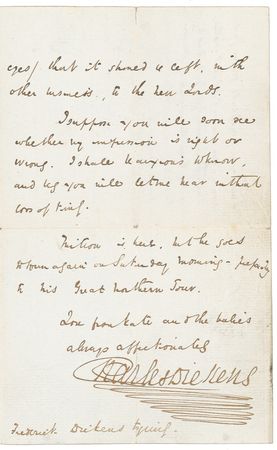 eyes) that it should be left, with
other business, to the new Lords.
I suppose you will soon see
whether my impression is right or
wrong. I shall be anxious to know,
and beg you will let me hear without
loss of time.
Mitton is here, but he goes
to town again on Saturday morning -
to his Great Northern Tour.
Love from Kate and the babies
always affectionately
Charles Dickens
Frederick Dickens Esquire.